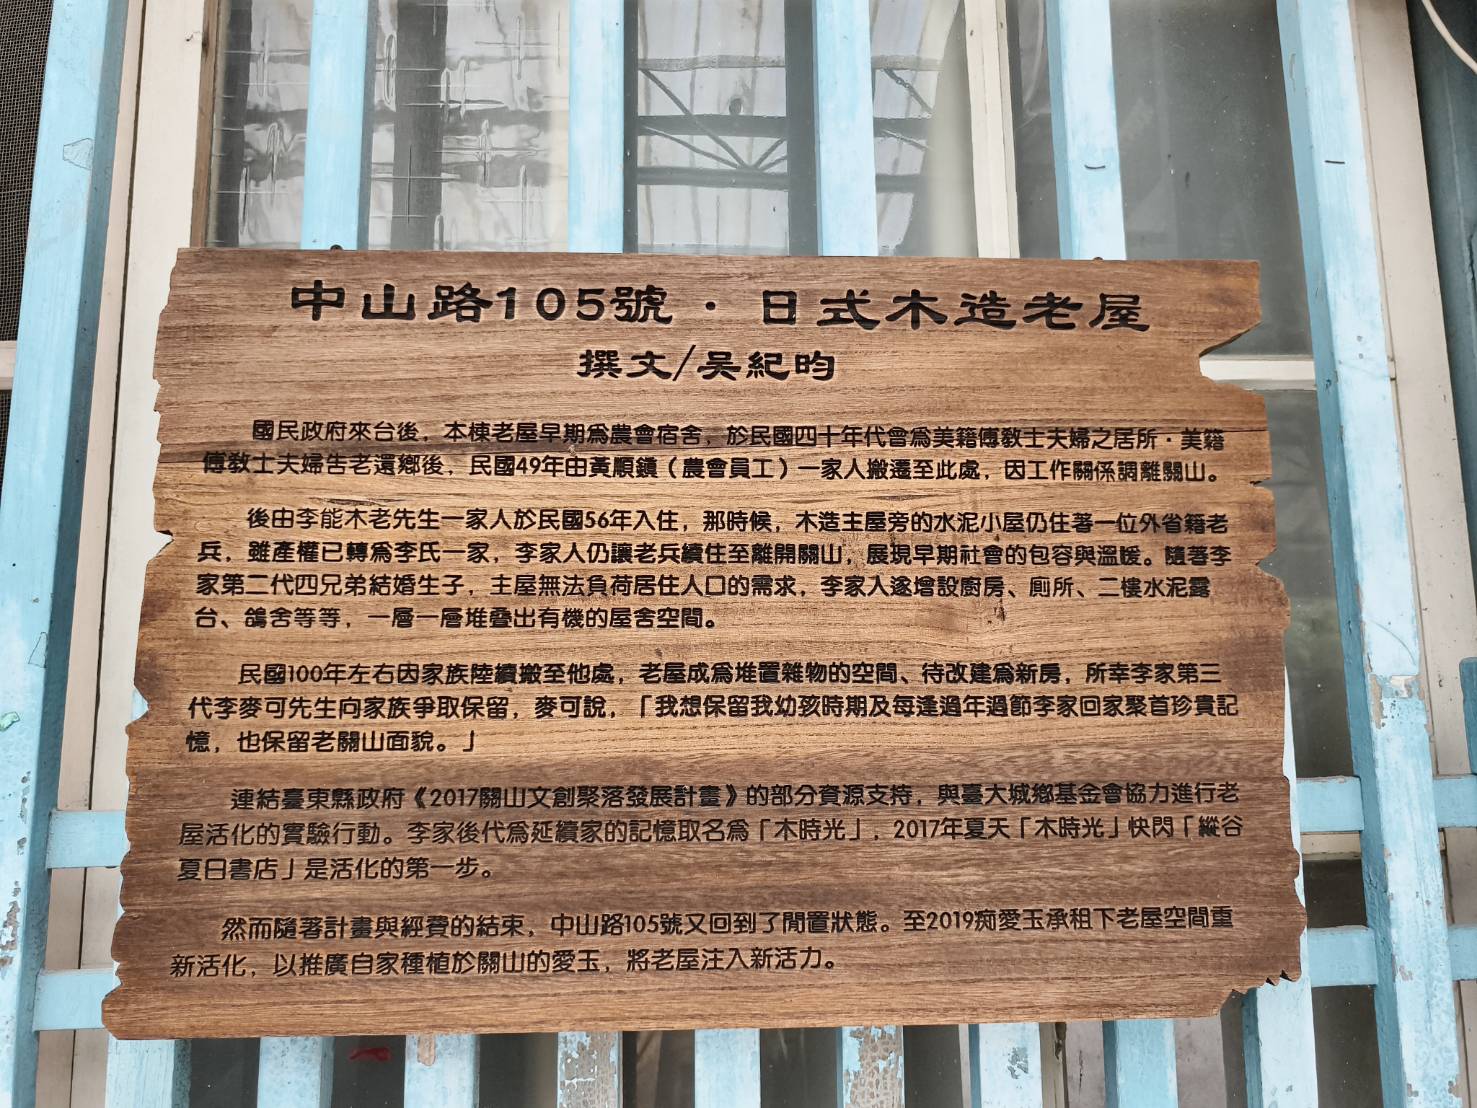 中山路105號・日式木造老屋
撰文/吳紀昀
國民政府來台後，本棟老屋早期為農會宿舍，於民國四十年代曾為美籍傳教士夫婦之居所・美籍
傳教士夫婦告老還鄉後，民國49年由黃順鎮（農會員工）一家人搬遷至此處，因工作關係調離關山。
後由李能木老先生一家人於民國56年入住，那時候，木造主屋旁的水泥小屋仍住著一位外省籍老
兵，雖產權已轉為李氏一家，李家人仍讓老兵續住至離開關山，展現早期社會的包容與溫暖。隨著李
家第二代四兄弟結婚生子，主屋無法負荷居住人口的需求，李家人遂增設廚房、廁所、二樓水泥露
台、鴿舍等等，一層一層堆疊出有機的屋舍空間。
民國100年左右因家族陸續搬至他處，老屋成為堆置雜物的空間、待改建為新房，所幸李家第三
代李麥可先生向家族爭取保留，麥可說，「我想保留我幼孩時期及每逢過年過節李家回家聚首珍貴記
憶，也保留老關山面貌。」
連結臺東縣政府《2017關山文創聚落發展計畫》的部分資源支持，與臺大城鄉基金會協力進行老
屋活化的實驗行動。李家後代為延續家的記憶取名為「木時光」，2017年夏天「木時光」快閃「縱谷
夏日書店」是活化的第一步。
然而隨著計畫與經費的結束，中山路105號又回到了閒置狀態。至2019痴愛玉承租下老屋空間重
新活化，以推廣自家種植於關山的愛玉，將老屋注入新活力。